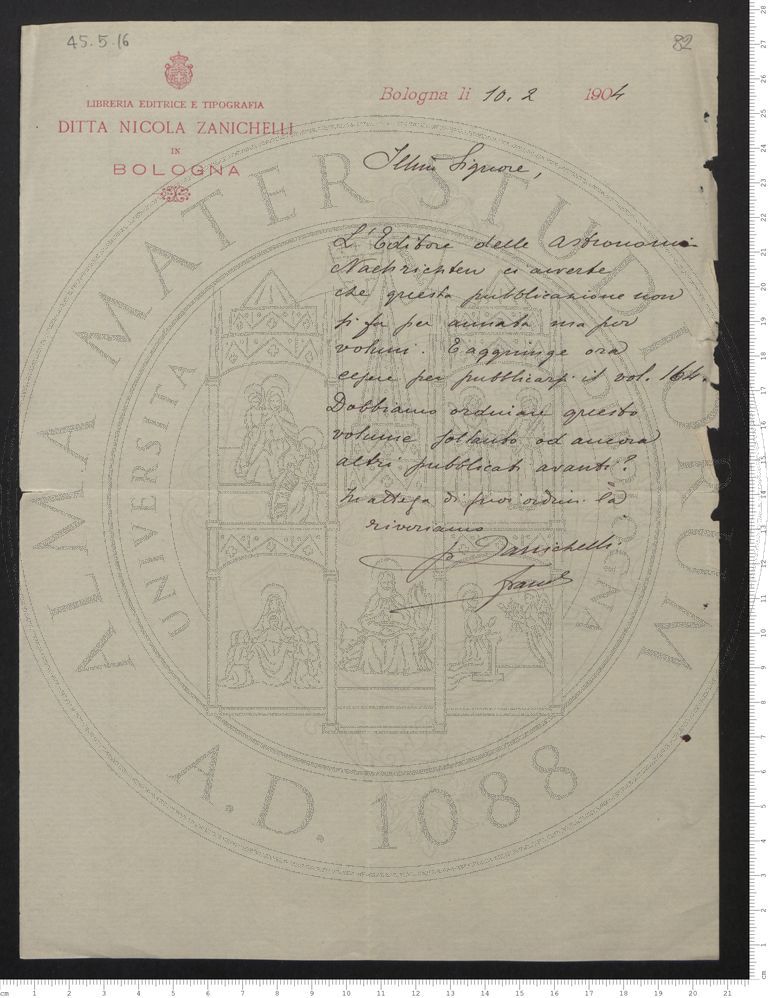 45.5.16
82
LIBRERIA EDITRICE E TIPOGRAFIA
DITTA NICOLA ZANICHELLI
IN
BOLOGNA
Bologna li 10. 2 1904
Illmo Signore,
L'Editore delle Astronomi
Nachrichten ci avverte
che questa pubblicazione non
si fa per annata ma per
volumi. E aggiunge ora
essere per pubblicarsi il vol. 164.
Dobbiamo ordinare questo
volume soltanto od ancora
altri pubblicati avanti?
In attesa di suoi ordini la
riveriamo
p Zanichelli
ALMA MATER STUDIORUM
UNIVERSITA BOLOGNA
A.D. 1088